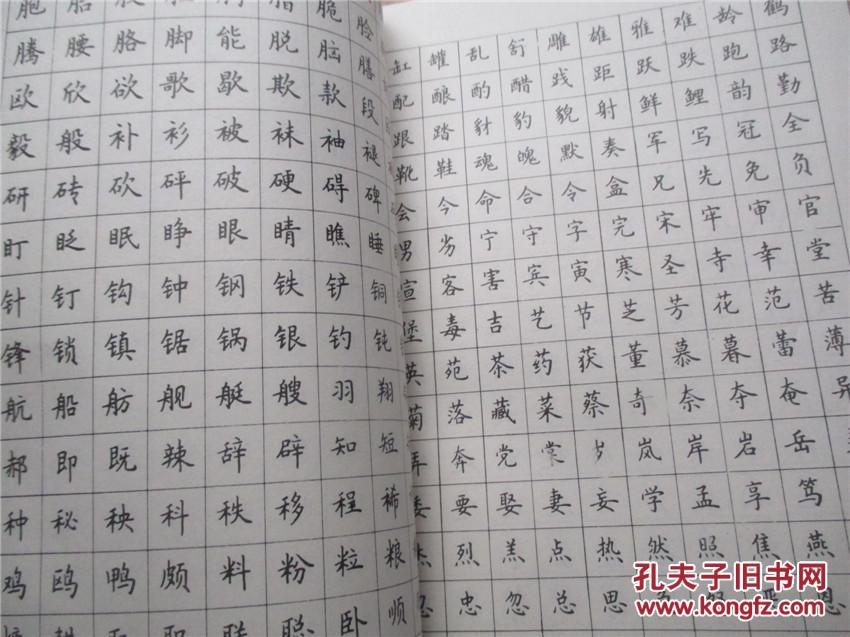 胞 胎 脆 脸
腾 腰 胳 脚 能 脱 脑 膳
欧 欣 欲 歌 歇 欺 款 段
毅 般 补 衫 被 袜 袖 褪
研 砖 砍 砰 破 硬 碍 碑
盯 眨 眠 睁 眼 睛 瞧 睡
针 钉 钩 钟 钢 铁 铲 铜
锋 锁 镇 锯 锅 银 钓 钝
航 船 舫 舰 艇 艘 羽 翔
郝 即 既 辣 辞 辟 知 短
种 秘 秧 科 秩 移 程 稀
鸡 鸥 鸭 颇 料 粉 粒 粮
卧 顺
缸 罐 乱 舒 雕 雄 雅 难 龄 鹤
配 酿 酌 醋 践 距 跃 跌 跑 路
跟 踏 豺 豹 貌 射 鲜 鲤 韵 勤
靴 鞋 魂 魄 默 奏 军 写 冠 全
会 今 命 合 令 盒 兄 先 免 负
男 劣 宁 守 字 完 宋 牢 审 官
宣 客 害 宾 寅 寒 圣 寺 幸 堂
堡 毒 吉 艺 节 芝 芳 花 范 苦
英 苑 茶 药 获 董 慕 暮 蕾 薄
菊 落 藏 菜 蔡 奇 奈 夺 奄
奔 党 岚 岸 岩 岳
要 娶 妻 妄 学 孟 享 笃
烈 羔 点 热 然 照 焦 燕
忠 忽 总 思 恩
孔夫子旧书网
www.kongfz.com